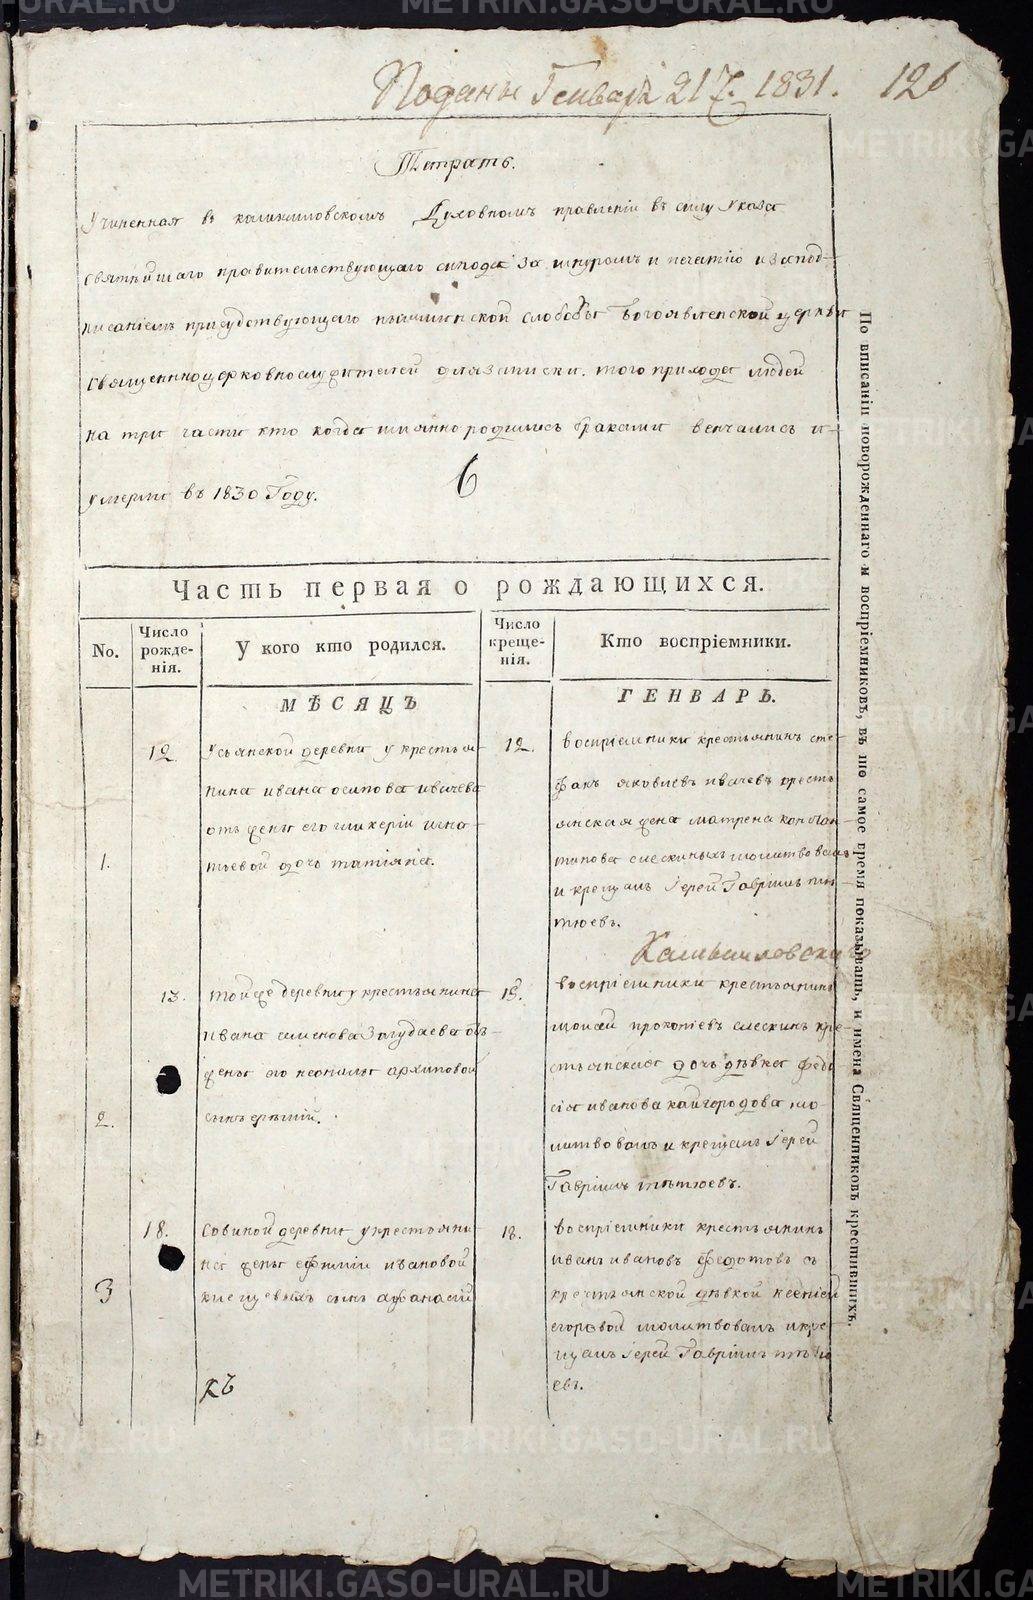 METRIKI.GASO-URAL.RU
Поданы Генваря 21 7. 1831. 126
Тетрать.
Учиненная въ камышловскомъ Духовномъ правленіи въ силу Указа
святѣйшаго правительствующаго синода за шнуромъ и печатію и заподписаніемъ присудствующаго пышминской слободы Богоявленской церкви
священноцерковнослужителей для записки. того прихода людей
на три части кто когда имянно родились браками венчались и
умерли въ 1830 Году.
6
Часть первая о рождающихся.
No.
Число рожденія.
У кого кто родился.
Число крещенія.
Кто воспріемники.
МѢСЯЦЪ
ГЕНВАРЬ.
1.
12.
деревни у крестья-
нина ивана осипова ивачева
отъ жены его гликеріи игна-
тьевой дочь татіяна.
12.
воспріемники крестьянинъ сте-
фанъ яковлевъ ивачевъ крестъ
янская жена матрена констан-
тинова молитвовалъ
и крещалъ Іерей Гавріилъ пы-
тюевъ.
Камышловскаго
2.
13.
тойже деревни у крестьянина
ивана семенова отъ
жены его неонилы архиповой
сынъ
13.
воспріемники крестьянинъ
моисей прокопіевъ кре-
стьянская дочь дѣвка федо
сіа иванова кайгородова мо-
литвовалъ и крещалъ Іерей
Гавріилъ
3
18.
Совиной деревни у крестьяни
на жены ефиміи ивановой
сынъ афанасій
18.
воспріемники крестьянинъ
иванъ ивановъ федотовъ съ
крестьянской дѣвкой ксеніей
егоровой молитвовалъ и кре-
щалъ Іерей Гавріилъ
евъ.
По вписаніи новорожденнаго и воспріемниковъ, въ то самое время показывать, и имена Священниковъ крестившихъ.
METRIKI.GASO-URAL.RU